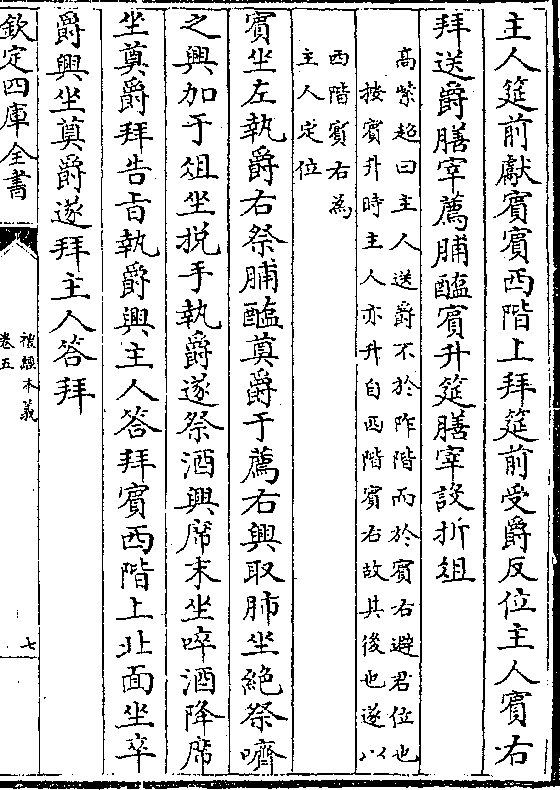 主人筵前獻賓賓西階上拜筵前受爵反位主人賓右
拜送爵膳宰薦脯醢賓升筵膳宰設折俎
高紫超曰主人送爵不於阼階而於賓右避君位也
按賓升時主人亦升自西階賓右故其後也遂以
西階賓右為
主人定位
賓坐左執爵右祭脯醢奠爵于薦右興取肺坐絶祭嚌
之興加于俎坐挩手執爵遂祭酒興席末坐啐酒降席
坐奠爵拜告旨執爵興主人答拜賓西階上北面坐卒
爵興坐奠爵遂拜主人答拜
欽定四庫全書
禮經本義
卷五
七